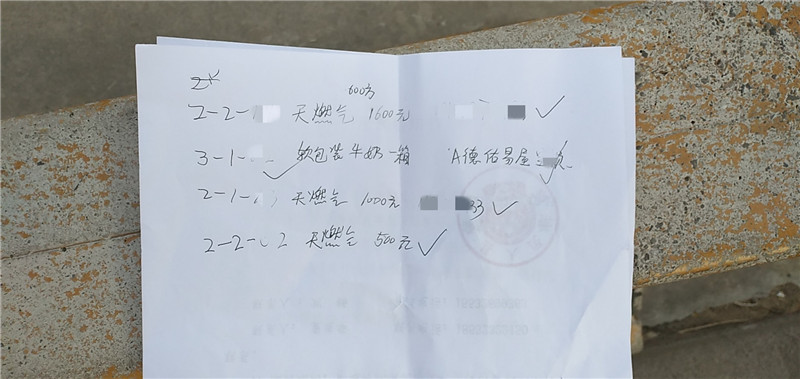 600方
2-2- 天燃气 1600元
3-1- 软包装牛奶一箱 A德佑易屋
2-1- 天燃气 1000元 33
2-2- 2 天燃气 500元